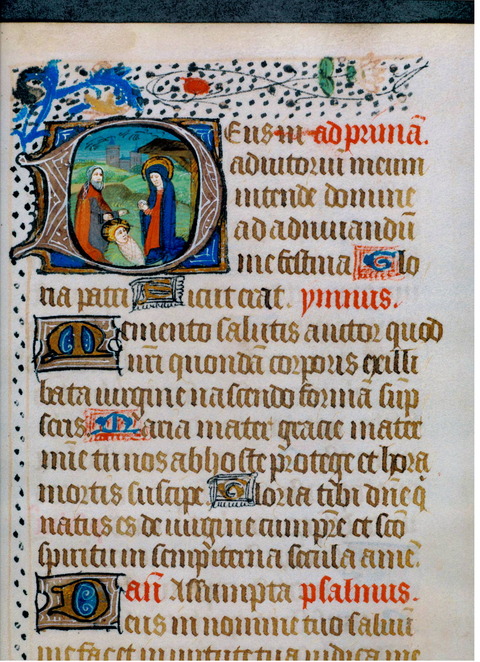 Deus in ad primā.
adiutoriū meum
intende domine
ad adiuuandū
me festina Glo
ria patri Sicut erat. ymnus.
Memento salutis auctor quod
nr̄i quondā corporis ex illi
bata uirgine nascendo formā sūp
seris Maria mater gracie mater
mīe tu nos ab hoste protege et hora
mortis suscipe Gloria tibi dn̄e q̄
natus es de uirgine cum pr̄e et sc̄o
spiritu in sempiterna secula amē.
an̄ Assumpta psalmus.
Deus in nomine tuo saluū
me fac et in uirtute tua iudica me